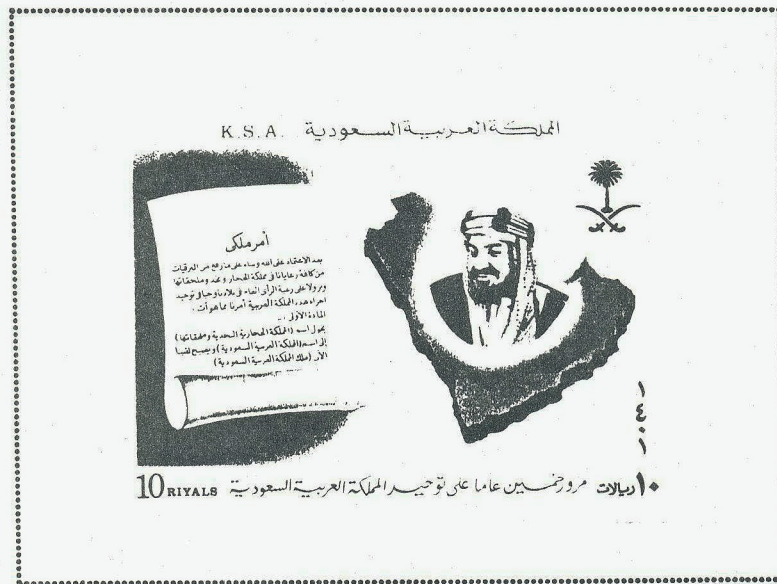 K.S.A. المملكة العربية السعودية
أمر ملكي
بعد الاعتماد على الله وبناء على ما رفع من البرقيات
من كافة رعايانا في مملكة الحجاز ونجد وملحقاتها
ونزولا على رغبة الرأي العام في بلادنا وحبا في توحيد
أجزاء هذه المملكة العربية أمرنا بما هو آت
المادة الأولى :ـ
يحول اسم (المملكة الحجازية النجدية وملحقاتها)
إلى اسم (المملكة العربية السعودية) ويصبح لقبنا
الآن (ملك المملكة العربية السعودية)
١٤٠١
10 RIYALS مرور خمسين عاما على توحيد المملكة العربية السعودية ١٠ ريالات